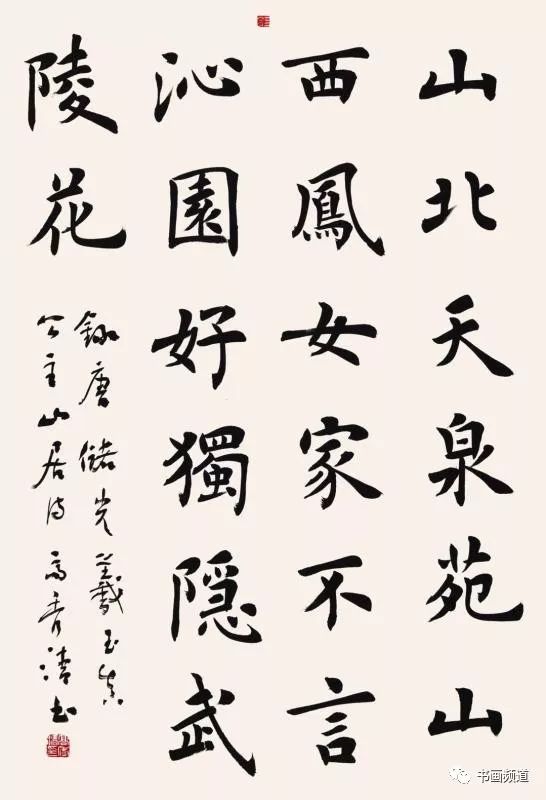 山北天泉苑山
西鳳女家不言
沁園好獨隐武
陵花
録唐儲光羲玉真
公主山居诗 高秀清书
书画频道